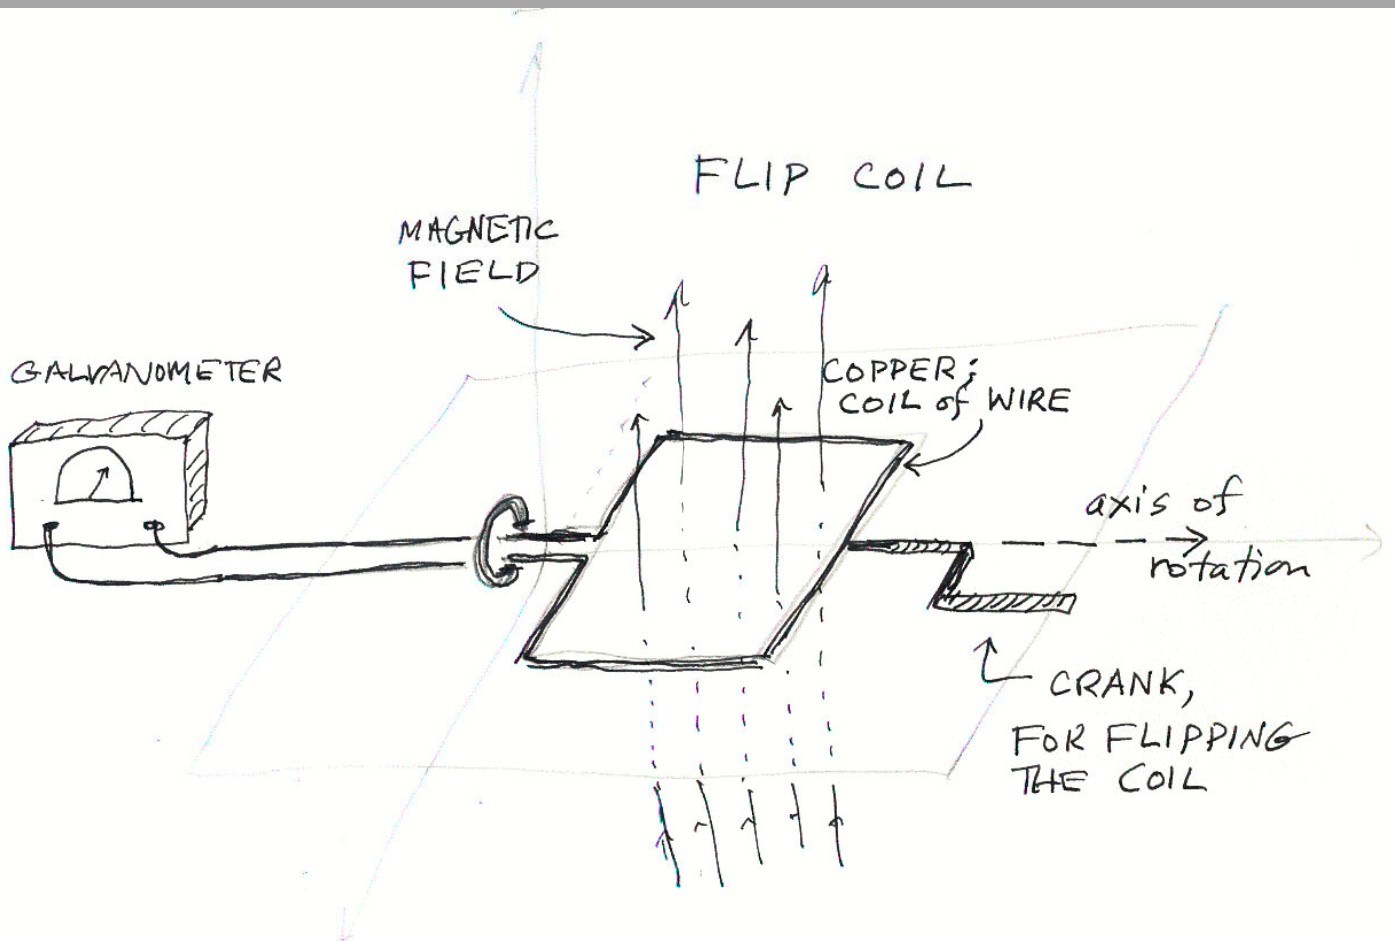 FLIP COIL
MAGNETIC
FIELD
GALVANOMETER
COPPER;
COIL of WIRE
axis of
rotation
CRANK,
FOR FLIPPING
THE COIL